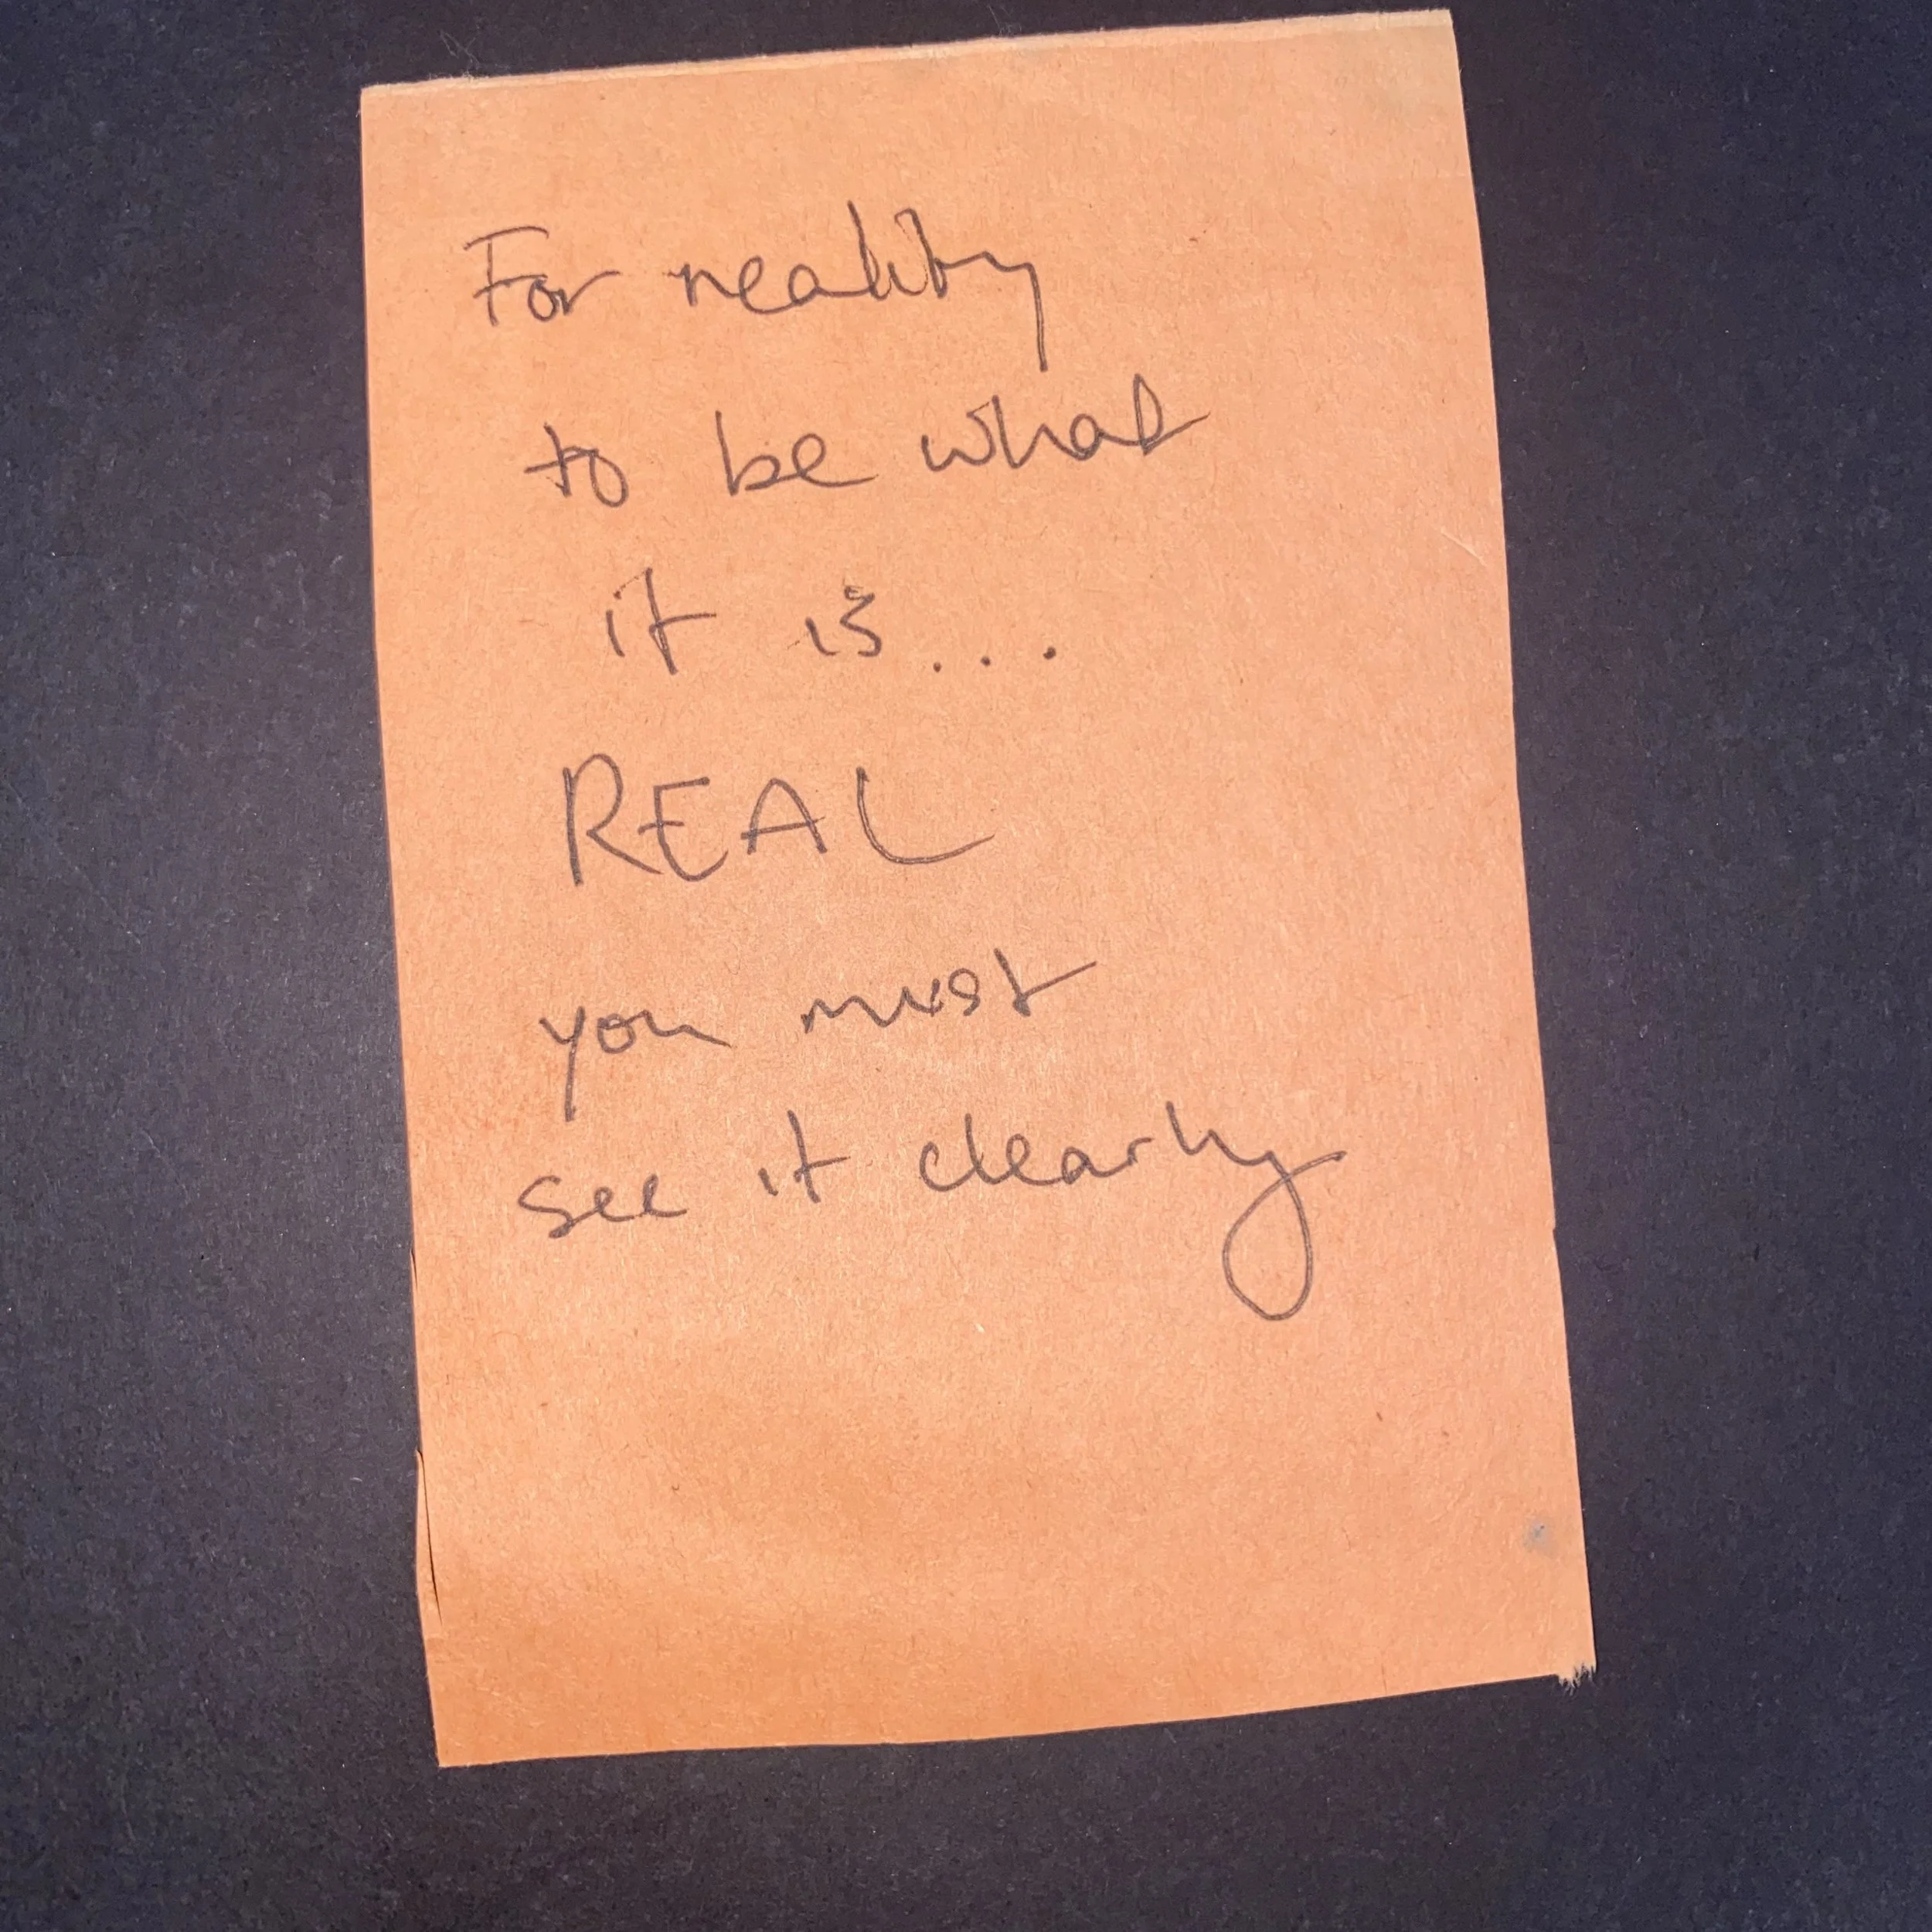 For reality
to be what
it is...
REAL
you must
see it clearly